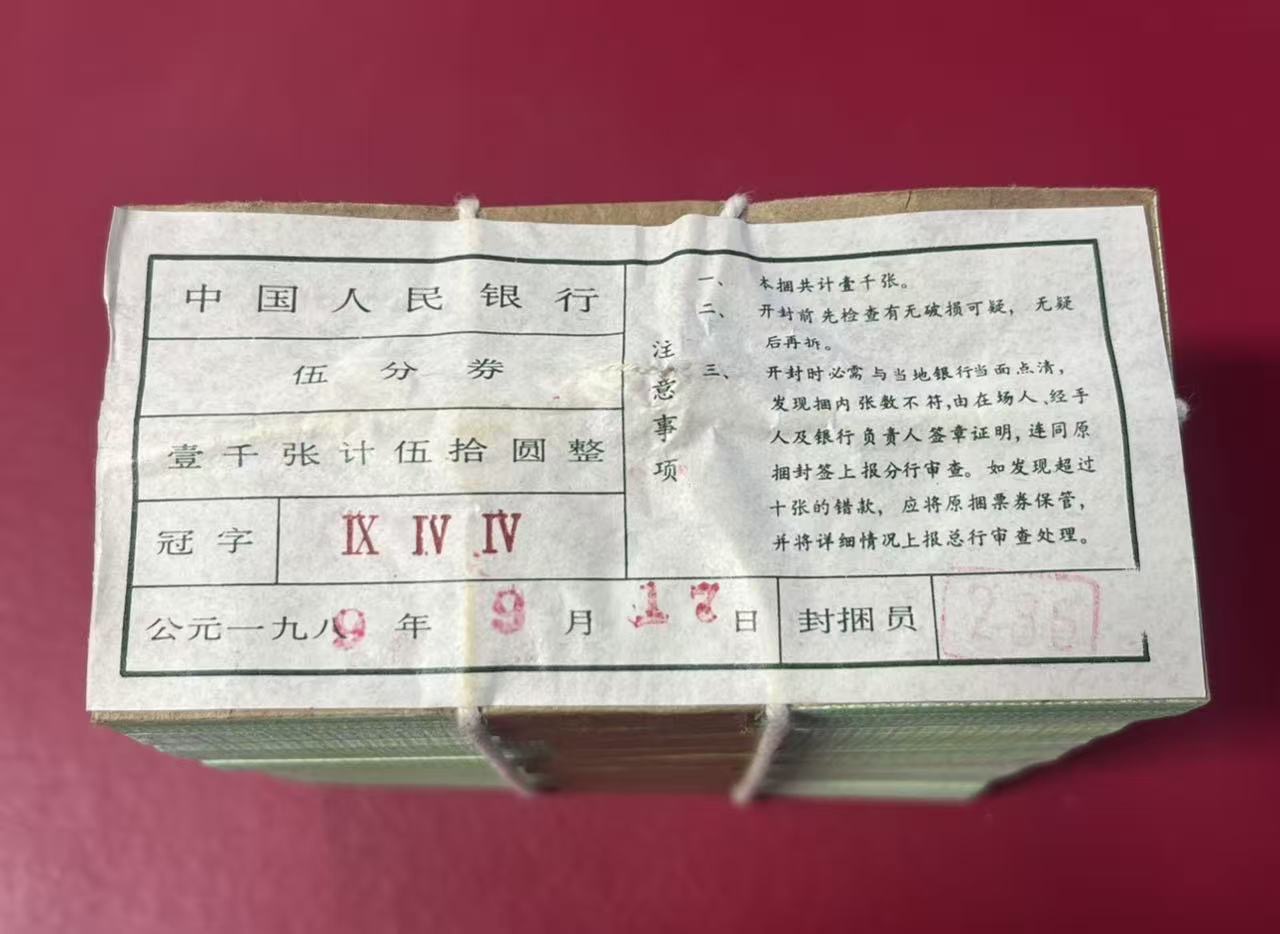 中国人民银行
伍分券
壹千张计伍拾圆整
冠字 IX IV IV
公元一九八9年9月17日 封捆员 236
注意事项
一、本捆共计壹千张。
二、开封前先检查有无破损可疑，无疑
后再拆。
三、开封时必需与当地银行当面点清，
发现捆内张数不符，由在场人、经手
人及银行负责人签章证明，连同原
捆封签上报分行审查。如发现超过
十张的错款，应将原捆票券保管，
并将详细情况上报总行审查处理。